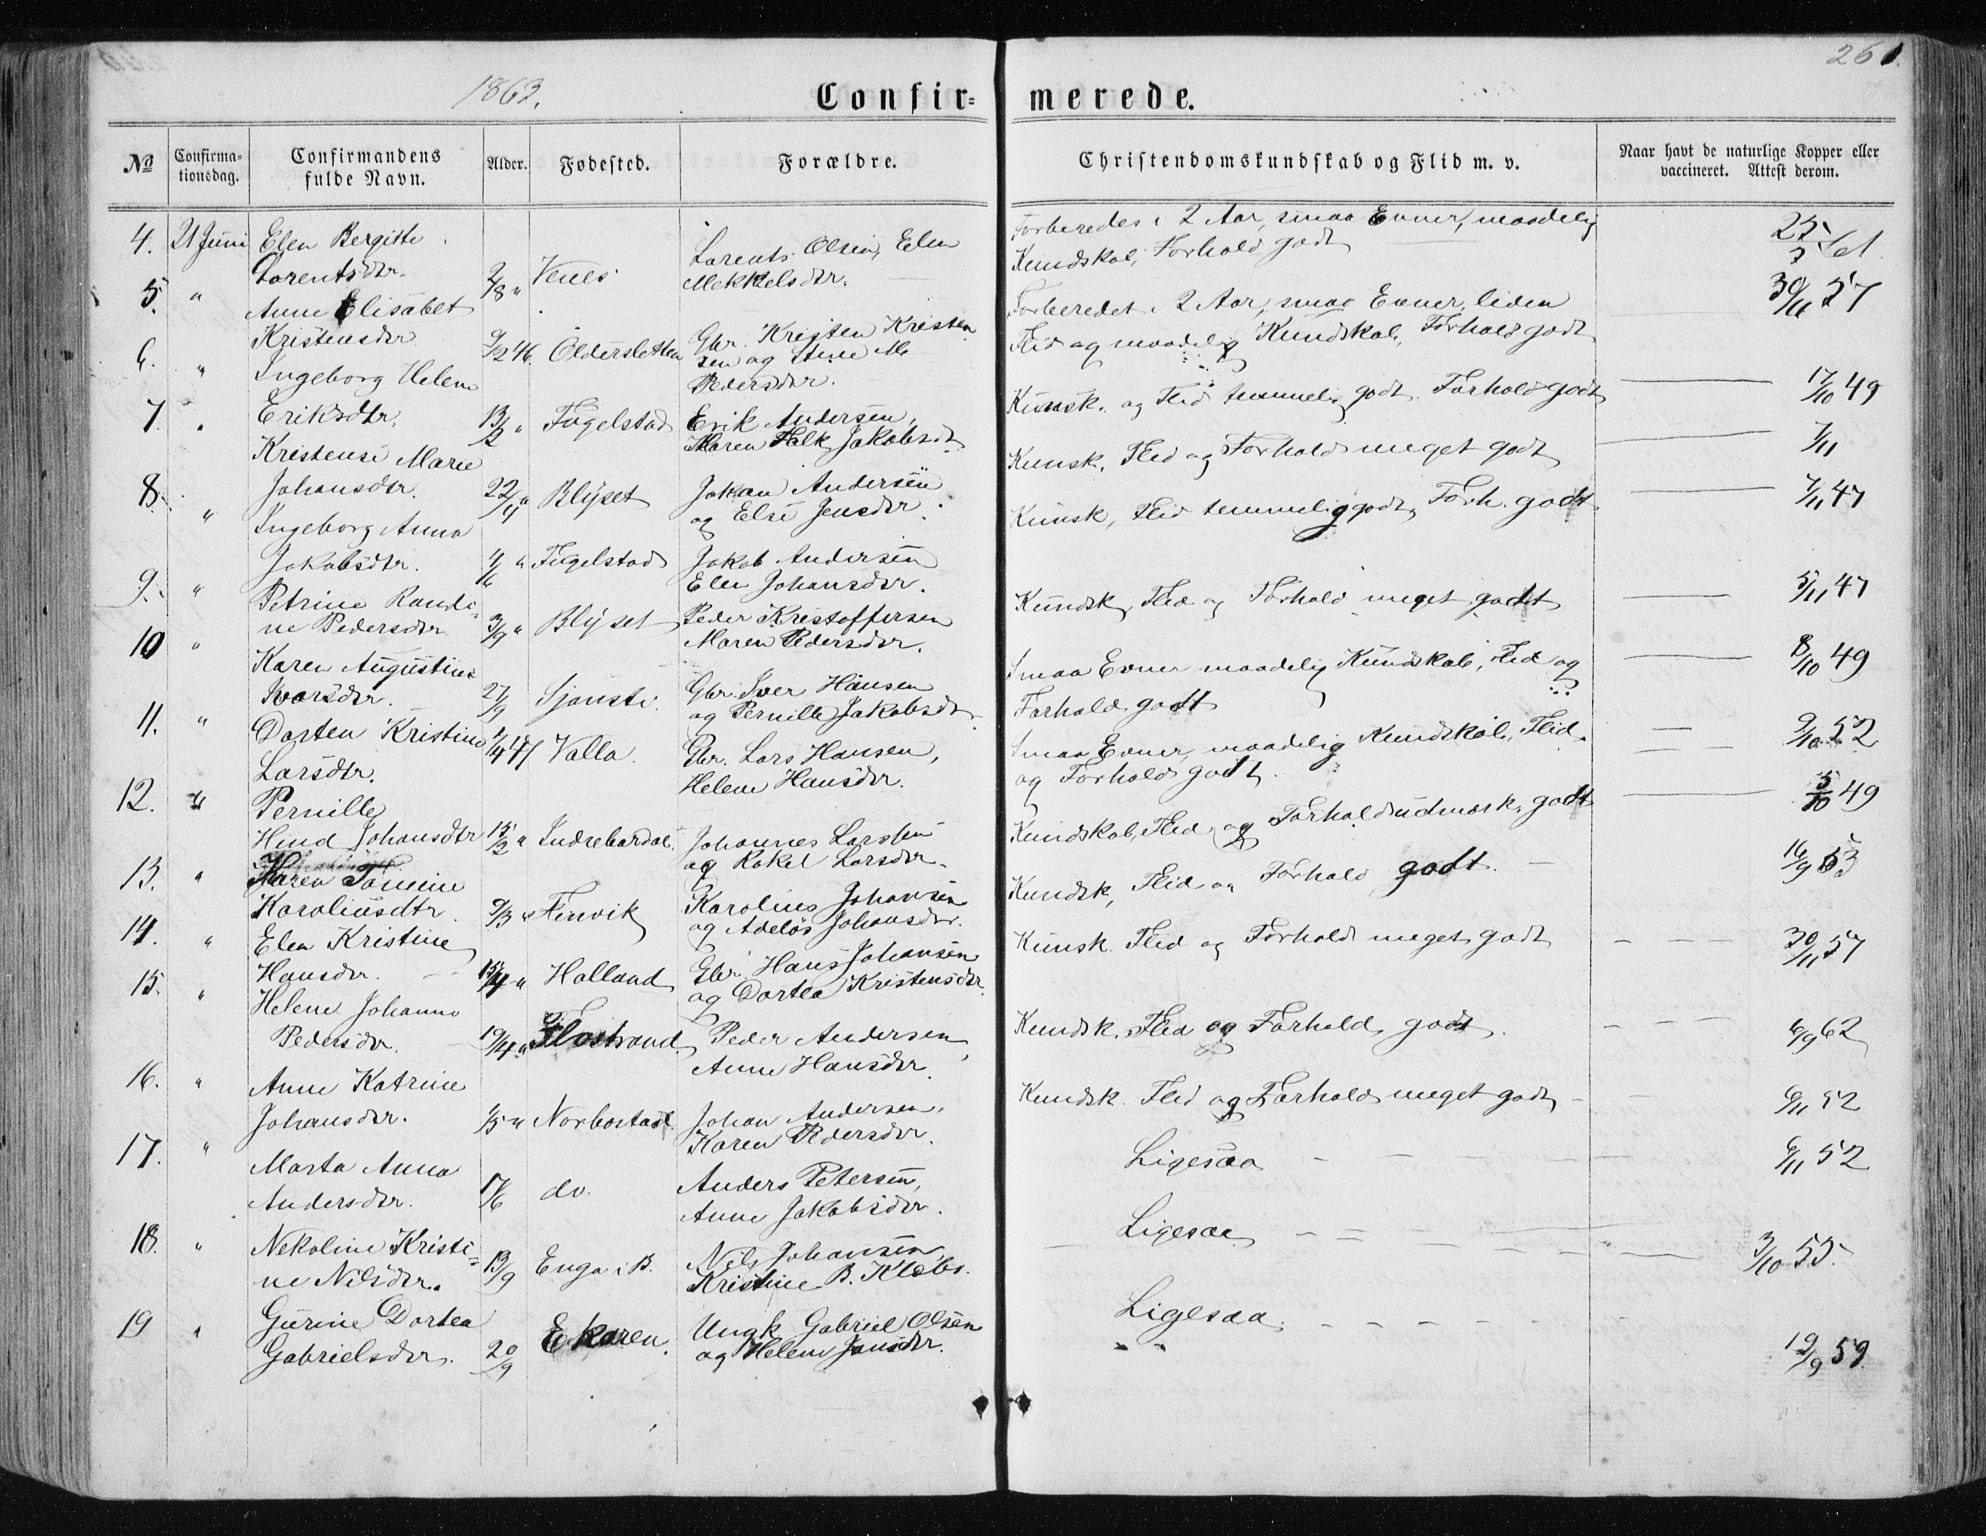 261.
1863.
Confir= merede.
No Confirmationsdag. Confirmandens fulde Navn. Alder. Fødested. Forældre. Christendomskundskab og Flid m. v. Naar havt de naturlige Kopper eller vaccineret. Attest derom.
4. 21 Juni Elen Bergitte Lorentsdtr. 2/8 " Venes Lorents Olsen, Elen Mekkelsdtr. Forberedes i 2 Aar, smaa Evner, maadelig Kundskab, Forhold godt
5. " Anne Elisabet Kristensdtr 9/2 46 Oldersletten Gbr. Kristen Kristensen og Stine M. Pedersdtr. Forberedet i 2 Aar, smaa Evner, liden Flid og maadelig Kundskab, Forhold godt 30/11 57
6. " Ingeborg Helene Eriksdtr. 13/2 " Fugelstad Erik Andersen, Maren Falk Jakobsdt Kunsk. og Flid temmelig godt. Forhold godt 17/10 49
7. " Kristense Marie Johansdtr. 22/4 " Blyset Johan Andersen og Else Jensdtr. Kunsk, Flid og Forhold meget godt 7/11
8. " Ingeborg Anna Jakobsdtr. 4/6 " Fugelstad Jakob Andersen Elen Johansdtr. Kunsk, Flid temmelig godt, Forh. godt 7/11 47
9. " Petrine Randine Pedersdtr 3/9 " Blyset Peder Kristoffersen Maren Pedersdtr. Kundsk, Flid og Forhold meget godt 5/11 47
10 " Karen Augustine Ivarsdtr. 27/9 Sjonsti. Gbr. Iver Hansen og Pernille Jakobsdt. Smaa Evner maadelig Kundskab, Flid og Forhold godt 8/10 49
11. " Dorten Kristine Larsdtr. 1/4 47 Valla. Gbr. Lars Hansen, Helene Hansdtr. Smaa Evner, maadelig Kundskab, Flid og Forhold godt. 9/10 52
12. " Pernille Johansdtr 15/2 " Indrebardal. Johannes Larsen og Rakel Larsdtr. Kundskab, Flid og Forhold udmærk. godt 5/10 49
13. " Karen Tomine Karoliusdtr 9/3 " Finvik Karolius Johansen og Adeløs Johansdtr. Kundsk, Flid og Forhold godt. 16/9 53
14. " Elen Kristine Hansdtr. 15/4 " Holland Gbr. Hans Johansen og Dortea Kristensdtr. Kunsk. Flid og Forhold meget godt 30/11 57
15. " Helene Johanne Pedersdtr. 19/4 " Flostrand. Peder Andersen, Anne Hansdtr. Kundsk. Flid og Forhold godt. 6/9 62
16. " Anne Katrine Johansdtr. 1/5 " Norbostad Johan Andersen, Karen Pedersdtr. Kundsk. Flid og Forhold meget godt 6/11 52
17. " Marta Anna Andersdtr. 17/6 do. Anders Petersen, Anne Jakobsdtr. Ligesaa 6/11 52
18. " Nekoline Kristine Nilsdtr. 13/9 Enga i B. Nils Johansen, Kristine B. Klæbo. Ligesaa 3/10 55.
19 " Gurine Dortea Gabrielsdtr. 20/9 Ekaren. Ungk. Gabriel Olsen og Helene Jansdtr. Ligesaa. 19/9 59.